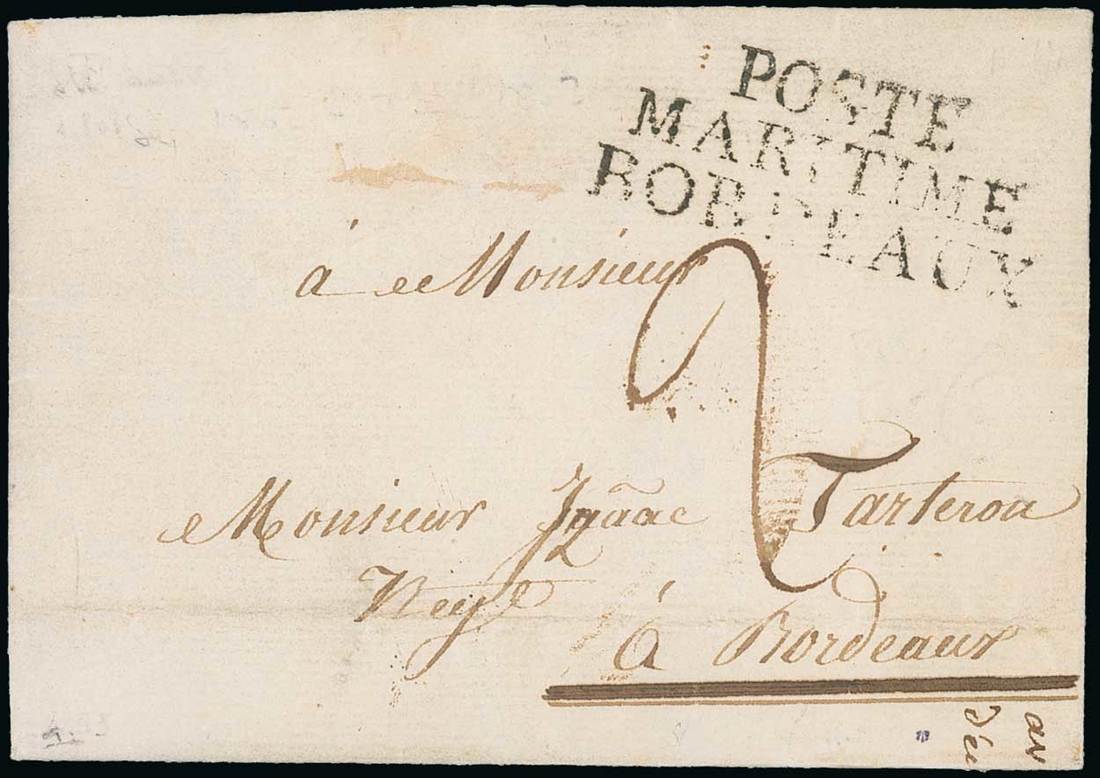 POSTE
MARITIME
BORDEAUX
2
à Monsieur
Monsieur Tarteron
Neg.t
à Bordeaux